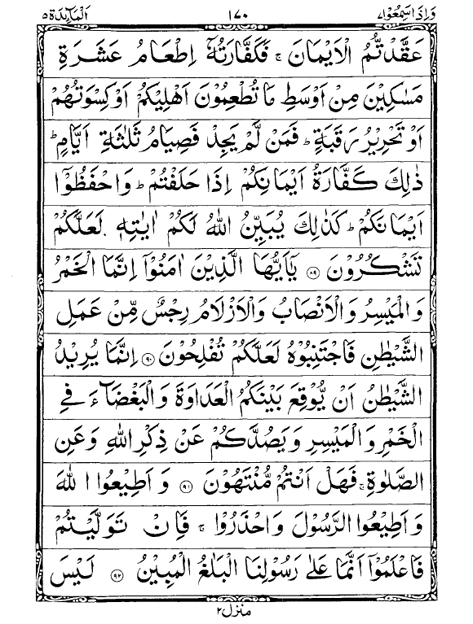 وَاِذَا سَمِعُوْا ٧ ١٧٠ اَلْمَآئِدَة ٥
عَقَّدْتُّمُ الْاَيْمَانَ ۚ فَكَفَّارَتُهٗۤ اِطْعَامُ عَشَرَةِ
مَسٰكِيْنَ مِنْ اَوْسَطِ مَا تُطْعِمُوْنَ اَهْلِيْكُمْ اَوْ كِسْوَتُهُمْ
اَوْ تَحْرِيْرُ رَقَبَةٍ ؕ فَمَنْ لَّمْ يَجِدْ فَصِيَامُ ثَلٰثَةِ اَيَّامٍ ؕ
ذٰلِكَ كَفَّارَةُ اَيْمَانِكُمْ اِذَا حَلَفْتُمْ ؕ وَاحْفَظُوْۤا
اَيْمَانَكُمْ ؕ كَذٰلِكَ يُبَيِّنُ اللّٰهُ لَكُمْ اٰيٰتِهٖ لَعَلَّكُمْ
تَشْكُرُوْنَ ۝٨٩ يٰۤاَيُّهَا الَّذِيْنَ اٰمَنُوْۤا اِنَّمَا الْخَمْرُ
وَالْمَيْسِرُ وَالْاَنْصَابُ وَالْاَزْلَامُ رِجْسٌ مِّنْ عَمَلِ
الشَّيْطٰنِ فَاجْتَنِبُوْهُ لَعَلَّكُمْ تُفْلِحُوْنَ ۝٩٠ اِنَّمَا يُرِيْدُ
الشَّيْطٰنُ اَنْ يُّوْقِعَ بَيْنَكُمُ الْعَدَاوَةَ وَالْبَغْضَآءَ فِى
الْخَمْرِ وَالْمَيْسِرِ وَيَصُدَّكُمْ عَنْ ذِكْرِ اللّٰهِ وَعَنِ
الصَّلٰوةِ ۚ فَهَلْ اَنْتُمْ مُّنْتَهُوْنَ ۝٩١ وَاَطِيْعُوا اللّٰهَ
وَاَطِيْعُوا الرَّسُوْلَ وَاحْذَرُوْا ۚ فَاِنْ تَوَلَّيْتُمْ
فَاعْلَمُوْۤا اَنَّمَا عَلٰى رَسُوْلِنَا الْبَلٰغُ الْمُبِيْنُ ۝٩٢ لَيْسَ
منزل ٢